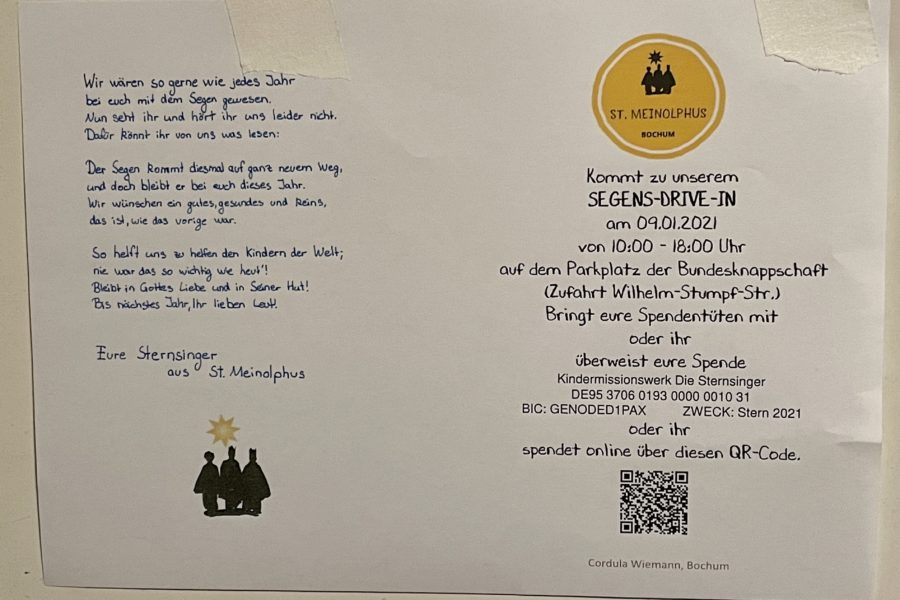 Wir wären so gerne wie jedes Jahr
bei euch mit dem Segen gewesen.
Nun seht ihr und hört ihr uns leider nicht.
Dafür könnt ihr von uns was lesen:
Der Segen kommt diesmal auf ganz neuem Weg,
und doch bleibt er bei euch dieses Jahr.
Wir wünschen ein gutes, gesundes und keins,
das ist, wie das vorige war.
So helft uns zu helfen den Kindern der Welt;
nie war das so wichtig wie heut'!
Bleibt in Gottes Liebe und in Seiner Hut!
Bis nächstes Jahr, Ihr lieben Leut'.
Eure Sternsinger
aus St. Meinolphus
ST. MEINOLPHUS
BOCHUM
Kommt zu unserem
SEGENS-DRIVE-IN
am 09.01.2021
von 10:00 - 18:00 Uhr
auf dem Parkplatz der Bundesknappschaft
(Zufahrt Wilhelm-Stumpf-Str.)
Bringt eure Spendentüten mit
oder ihr
überweist eure Spende
Kindermissionswerk Die Sternsinger
DE95 3706 0193 0000 0010 31
BIC: GENODED1PAX ZWECK: Stern 2021
oder ihr
spendet online über diesen QR-Code.
Cordula Wiemann, Bochum